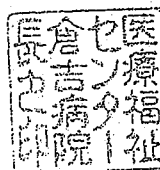 医療福祉
センター
倉吉病院
長之印